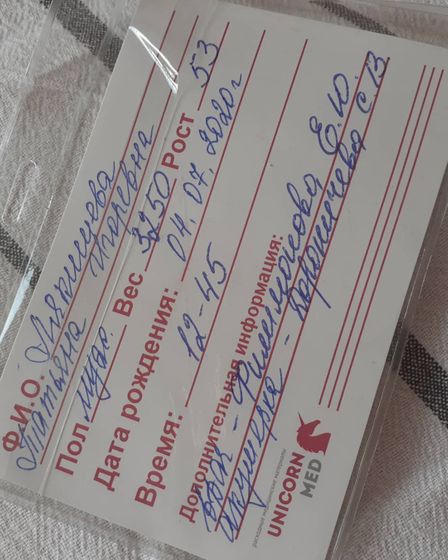 Ф.И.О. Лякишева
Татьяна Игоревна
Пол муж. Вес 3250 Рост 53
Дата рождения: 04.07.2020г
Время: 12-45
Дополнительная информация:
врач - Филимонова Е.Ю.
Акушерка - Воропичева С.В
UNICORN
MED
расходные медицинские материалы